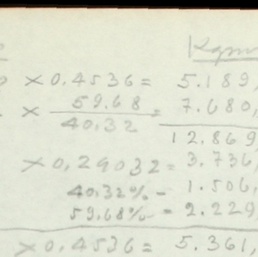 Kgms
× 0.4536 = 5.189,
× 59.68 / 40.32 = 7.680,
12.869
× 0,29032 = 3.736,
40.32% - 1.506,
59.68% = 2.229
× 0.4536 = 5.361,